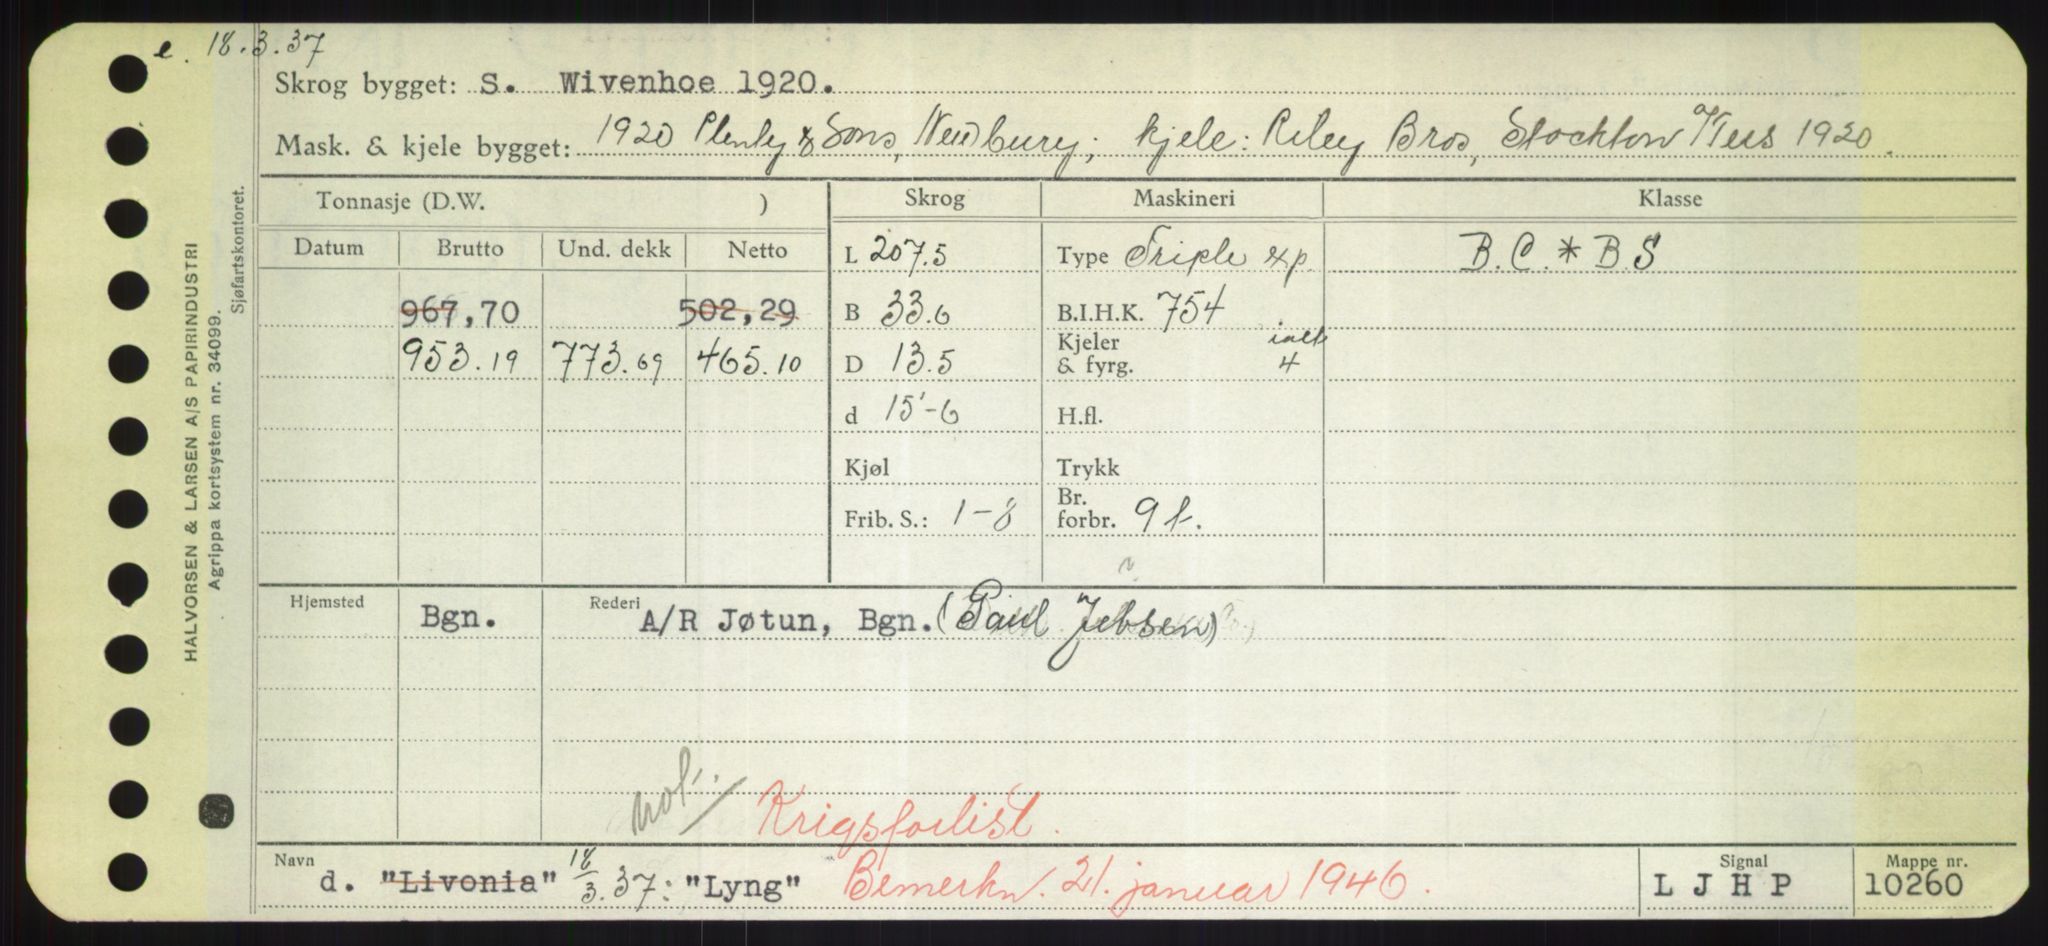 e. 18.3.37
Skrog bygget: S. Wivenhoe 1920.
Mask. & kjele bygget: 1920 Plenty & Sons, Newbury; kjele: Riley Bros, Stockton /Tees 1920.
Tonnasje (D.W. ) Skrog Maskineri Klasse
Datum Brutto Und. dekk Netto L 207.5 Type Triple exp. B.C.* B.S
967,70 502,29 B 33.6 B.I.H.K. 754
953.19 773.69 465.10 D 13.5 Kjeler & fyrg. ialt 4
d 15'-6 H.fl.
Kjøl Trykk
Frib. S.: 1-8 Br. forbr. 9 t.
Hjemsted Bgn. Rederi A/R Jøtun, Bgn. (Paul Jebsen)
not.
Krigsforlist.
Navn d. "Livonia" 18/3.37: "Lyng" Bemerkn. 21. januar 1946. Signal LJHP Mappe nr. 10260
HALVORSEN & LARSEN A/S PAPIRINDUSTRI
Agrippa kortsystem nr. 34099.
Sjøfartskontoret.